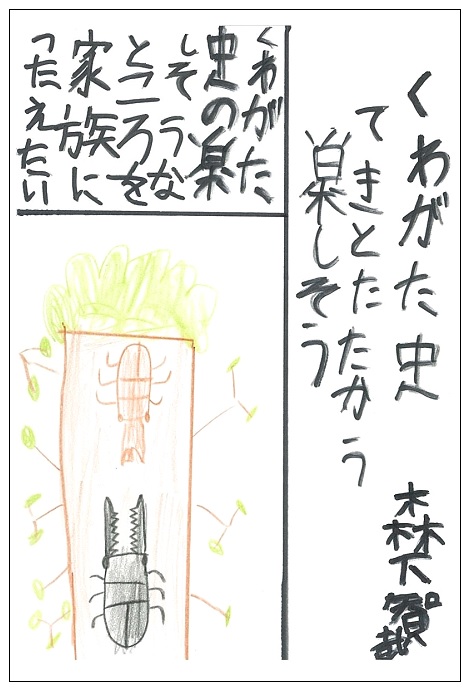 くわがた虫
てきとたたかう
巣しそう
森下
くわがた
虫の巣
しそうな
ところを
家族に
つたえたい